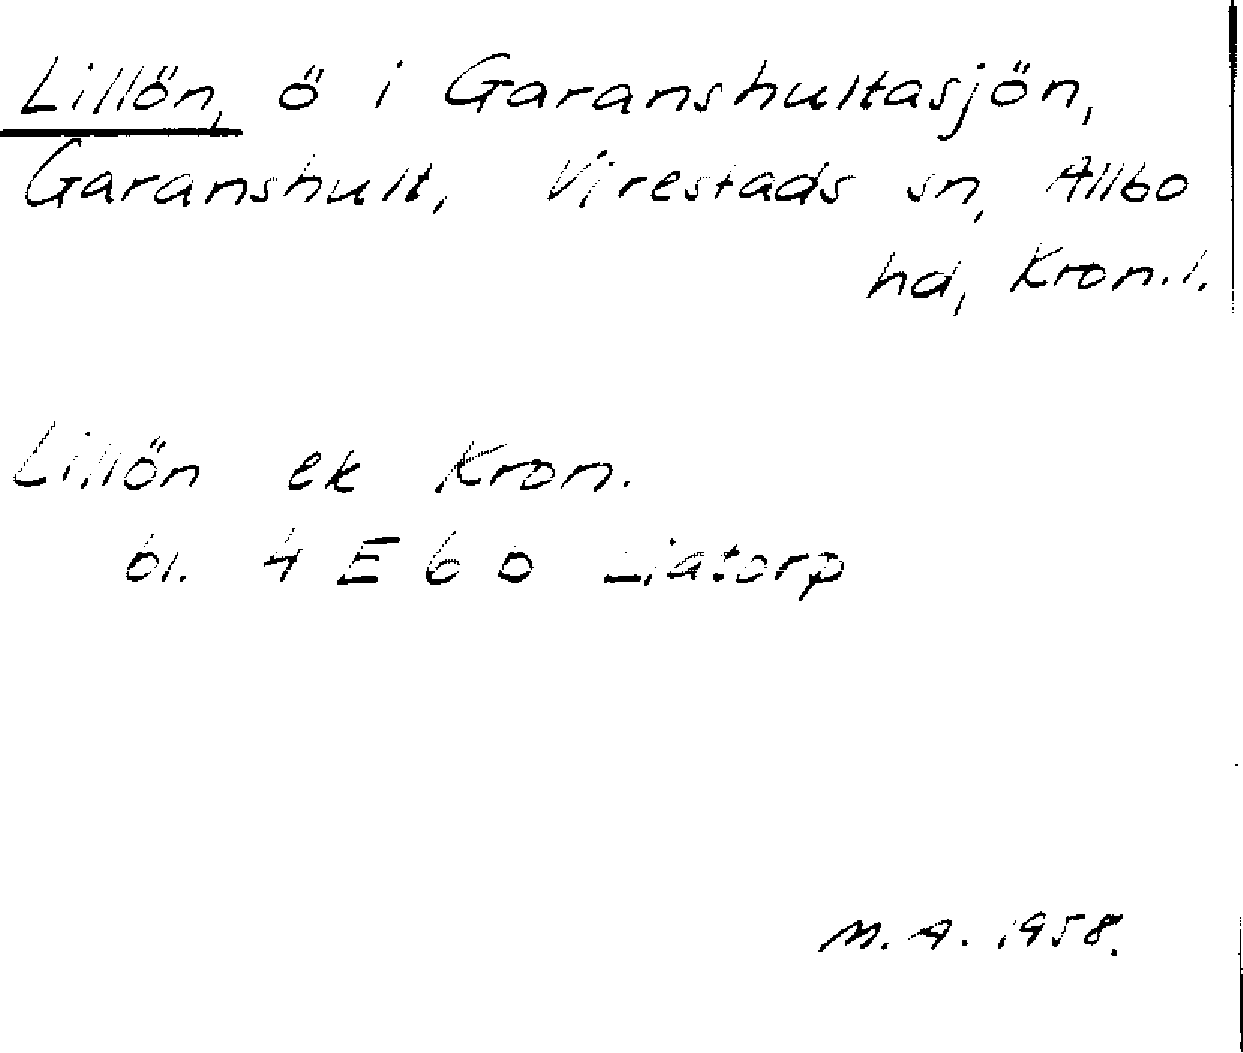 Lillön, ö i Garanshultasjön,
Garanshult, Virestads sn, Allbo
hd, Kron.l.
Lillön ek Kron.
bl. 4 E 6 b Liatorp
M.A. 1958.